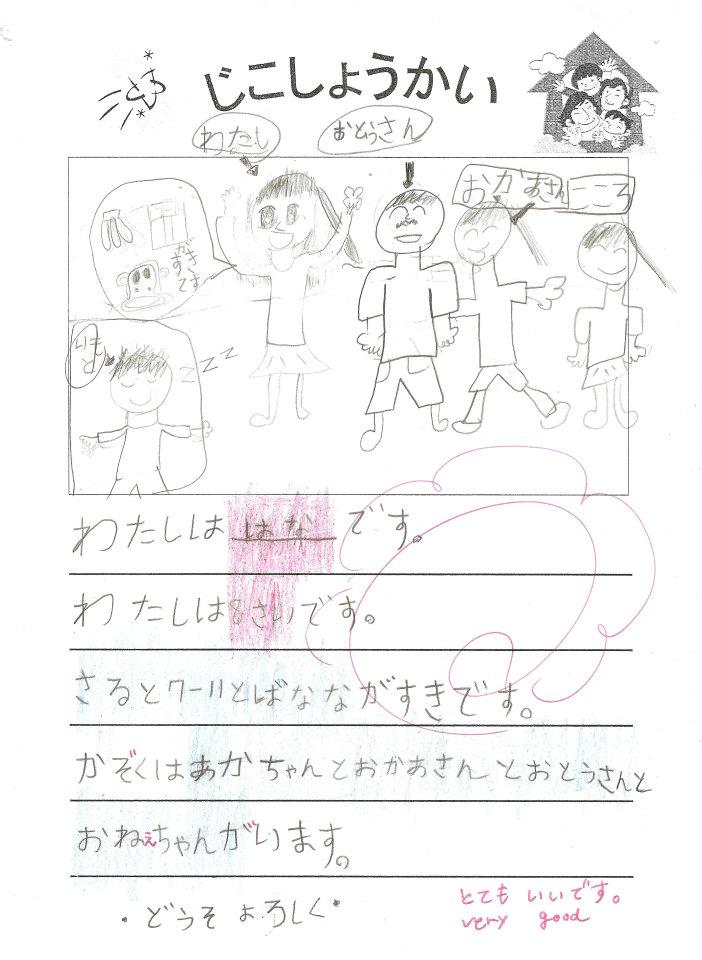 じこしょうかい
わたし
おとうさん
おかあさん
こころ
zzz
わたしは はな です。
わたしは8さいです。
さると とばなながすきです。
かぞくはあかちゃんとおかあさんとおとうさんと
おねぇちゃんがいます。
・どうそよろしく・
とてもいいです。
very good